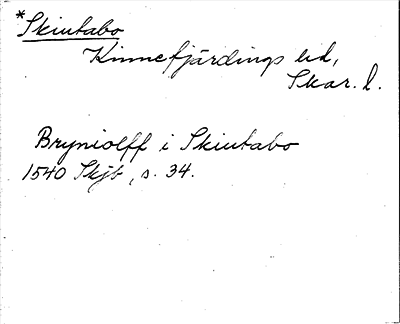 *Skiutabo
Kinnefjärdings hd,
Skar. l.
Bryniolff i Skiutabo
1540 Skjb, s. 34.